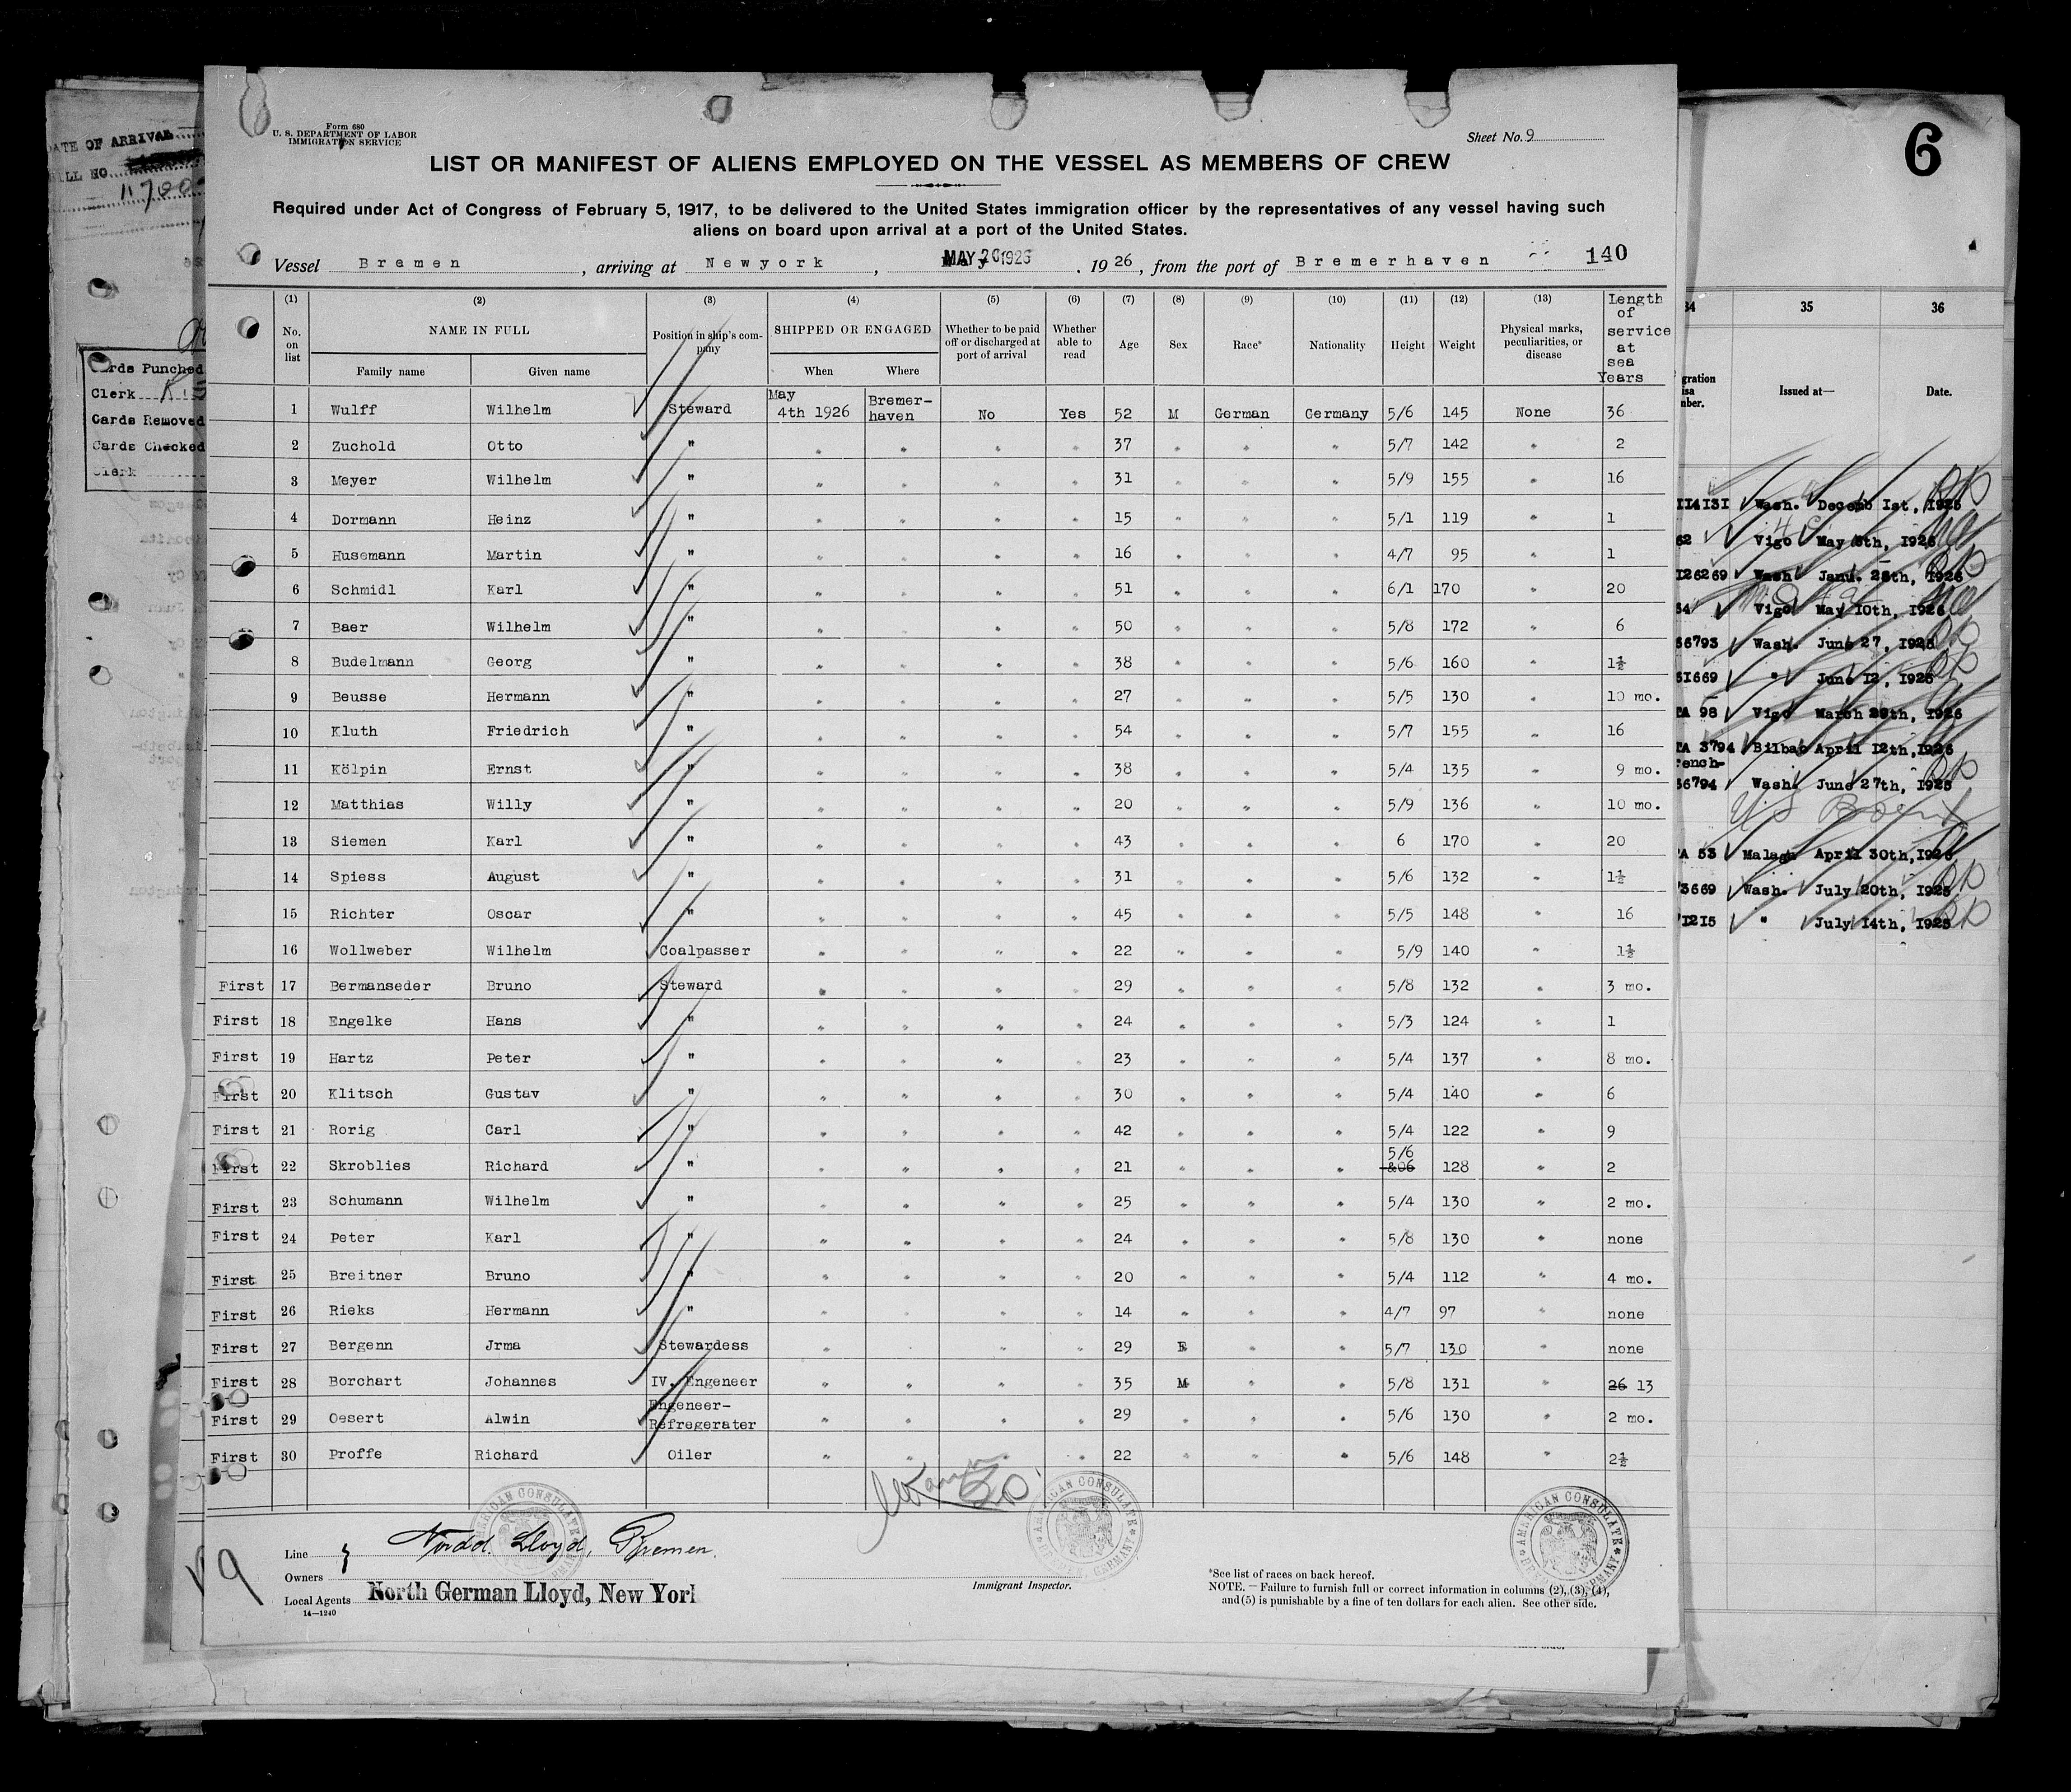 Form 680
U. S. DEPARTMENT OF LABOR
IMMIGRATION SERVICE
Sheet No. 9
LIST OR MANIFEST OF ALIENS EMPLOYED ON THE VESSEL AS MEMBERS OF CREW
Required under Act of Congress of February 5, 1917, to be delivered to the United States immigration officer by the representatives of any vessel having such
aliens on board upon arrival at a port of the United States.
Vessel Bremen, arriving at Newyork, MAY 20 1926, 1926, from the port of Bremerhaven 140
(1) (2) (3) (4) (5) (6) (7) (8) (9) (10) (11) (12) (13)
No. on list NAME IN FULL Family name Given name Position in ship's company SHIPPED OR ENGAGED When Where Whether to be paid off or discharged at port of arrival Whether able to read Age Sex Race* Nationality Height Weight Physical marks, peculiarities, or disease Length of service at sea Years
1 Wulff Wilhelm Steward May 4th 1926 Bremer-haven No Yes 52 M German Germany 5/6 145 None 36
2 Zuchold Otto " " " " " 37 " " " 5/7 142 " 2
3 Meyer Wilhelm " " " " " 31 " " " 5/9 155 " 16
4 Dormann Heinz " " " " " 15 " " " 5/1 119 " 1
5 Husemann Martin " " " " " 16 " " " 4/7 95 " 1
6 Schmidl Karl " " " " " 51 " " " 6/1 170 " 20
7 Baer Wilhelm " " " " " 50 " " " 5/8 172 " 6
8 Budelmann Georg " " " " " 38 " " " 5/6 160 " 1½
9 Beusse Hermann " " " " " 27 " " " 5/5 130 " 10 mo.
10 Kluth Friedrich " " " " " 54 " " " 5/7 155 " 16
11 Kölpin Ernst " " " " " 38 " " " 5/4 135 " 9 mo.
12 Matthias Willy " " " " " 20 " " " 5/9 136 " 10 mo.
13 Siemen Karl " " " " " 43 " " " 6 170 " 20
14 Spiess August " " " " " 31 " " " 5/6 132 " 1½
15 Richter Oscar " " " " " 45 " " " 5/5 148 " 16
16 Wollweber Wilhelm Coalpasser " " " " 22 " " " 5/9 140 " 1½
First 17 Bermanseder Bruno Steward " " " " 29 " " " 5/8 132 " 3 mo.
First 18 Engelke Hans " " " " " 24 " " " 5/3 124 " 1
First 19 Hartz Peter " " " " " 23 " " " 5/4 137 " 8 mo.
First 20 Klitsch Gustav " " " " " 30 " " " 5/4 140 " 6
First 21 Rorig Carl " " " " " 42 " " " 5/4 122 " 9
First 22 Skroblies Richard " " " " " 21 " " " 5/6 128 " 2
First 23 Schumann Wilhelm " " " " " 25 " " " 5/4 130 " 2 mo.
First 24 Peter Karl " " " " " 24 " " " 5/8 130 " none
First 25 Breitner Bruno " " " " " 20 " " " 5/4 112 " 4 mo.
First 26 Rieks Hermann " " " " " 14 " " " 4/7 97 " none
First 27 Bergenn Jrma Stewardess " " " 29 " " 5/7 130 " none
First 28 Borchart Johannes IV. Engeneer " " " " 35 M " " 5/8 131 " 26 13
First 29 Oesert Alwin Engeneer-Refregerater " " " " 29 " " " 5/6 130 " 2 mo.
First 30 Proffe Richard Oiler " " " 22 " " " 5/6 148 " 2½
Line Nordd. Lloyd, Bremen.
Owners
Local Agents North German Lloyd, New York
14—1240
Immigrant Inspector.
AMERICAN CONSULATE
*See list of races on back hereof.
NOTE. — Failure to furnish full or correct information in columns (2), (3), (4),
and (5) is punishable by a fine of ten dollars for each alien. See other side.
V9
DATE OF ARRIVAL
Cards Punched
Clerk
Cards Removed
Cards Checked
Clerk
6
34 35 36
Issued at— Date.
114131 Wash. Decemb 1st, 1925
62 Vigo May 8th, 1926
126269 Wash. Janu. 28th, 1926
64 Vigo May 10th, 1926
66793 Wash. June 27, 1925
61669 " June 12, 1925
TA 98 Vigo March 29th, 1926
TA 3794 Bilbao April 12th, 1926
66794 Wash. June 27th, 1925
US Born
A 53 Malaga April 30th, 1926
73669 Wash. July 20th, 1925
71215 " July 14th, 1925